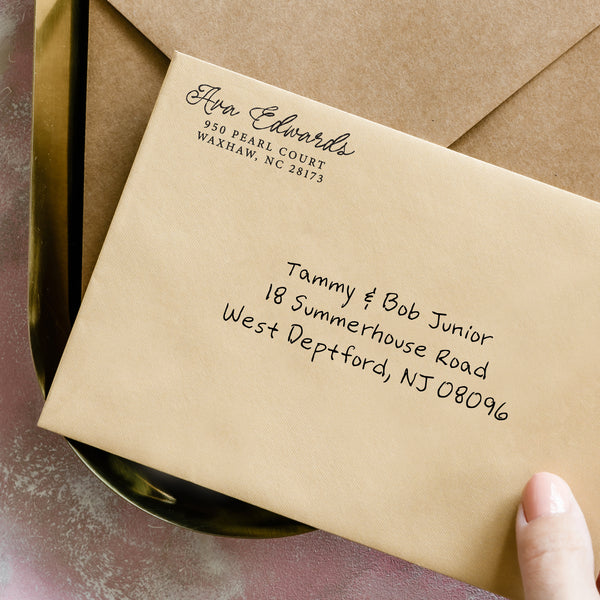 Ava Edwards
950 PEARL COURT
WAXHAW, NC 28173
Tammy & Bob Junior
18 Summerhouse Road
West Deptford, NJ 08096